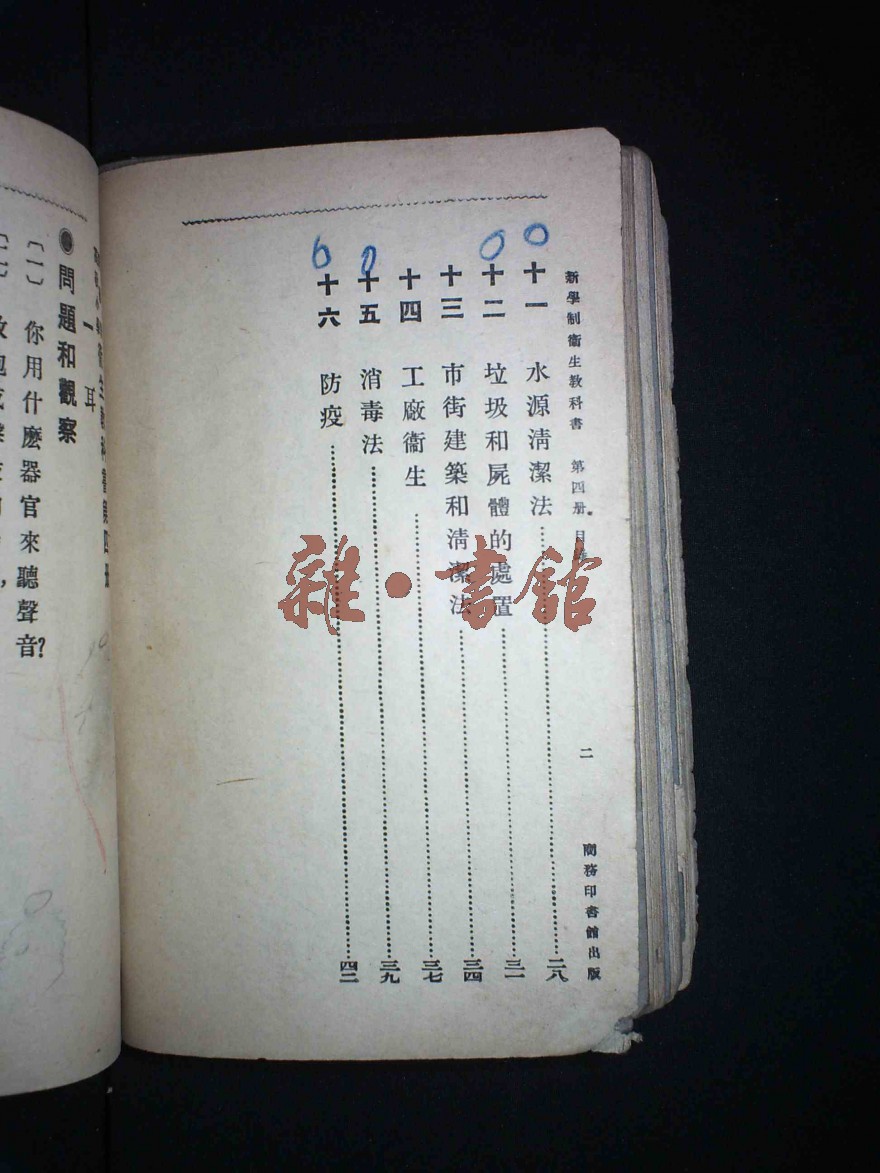 新學制衞生教科書 第四册 目錄 二 商務印書館出版
十一 水源淸潔法 二八
十二 垃圾和屍體的處置 三一
十三 市街建築和淸潔法 三四
十四 工廠衞生 三七
十五 消毒法 三九
十六 防疫 四二
衞生教科書第四册
一 耳
問題和觀察
〔一〕 你用什麽器官來聽聲音?
雜·書館